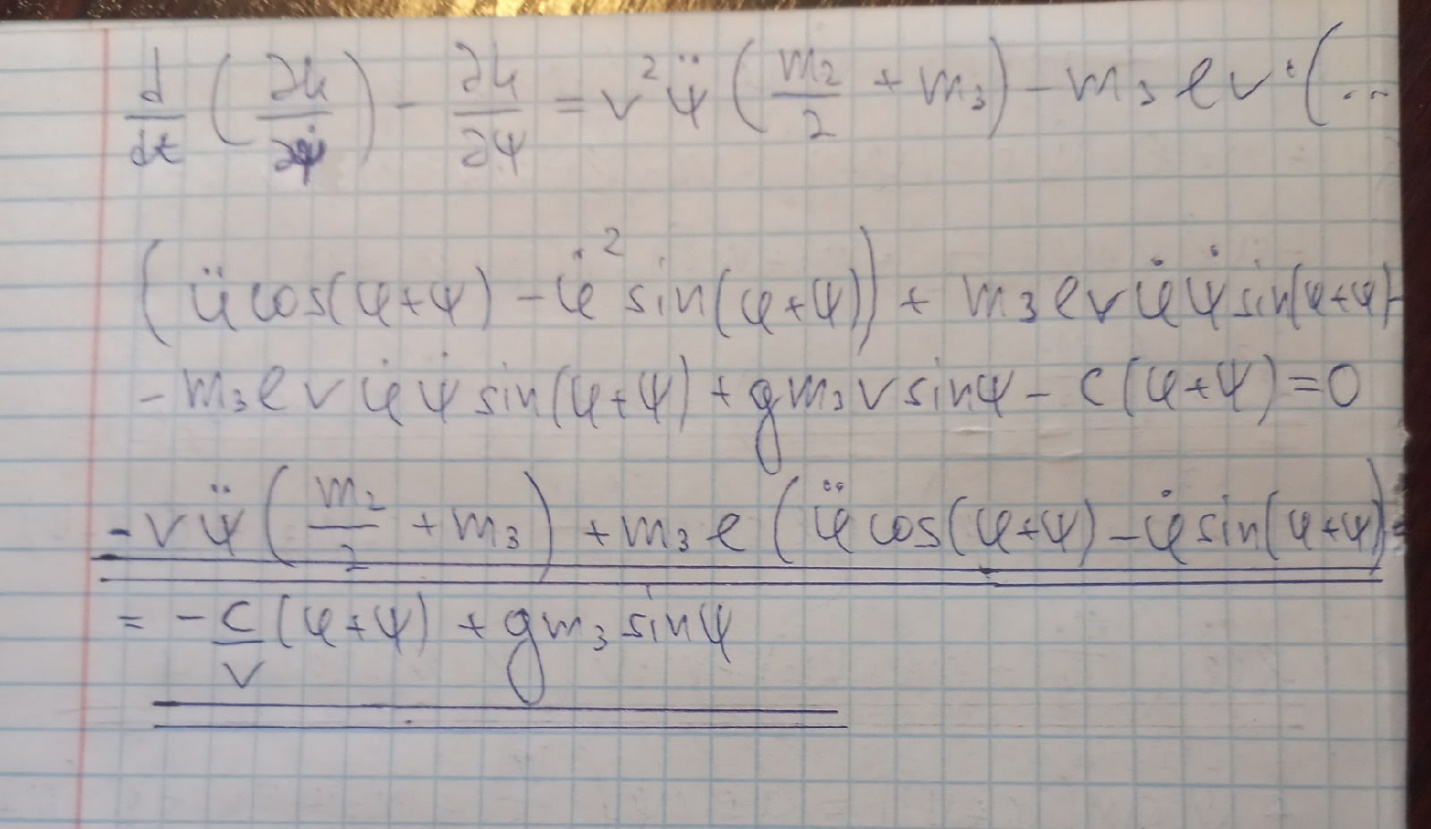 d/dt (∂L/∂ψ̇) - ∂L/∂ψ = r²ψ̈ (m₂/2 + m₃) - m₃ℓr·(...
(φ̈cos(φ+ψ) - φ̇² sin(φ+ψ)) + m₃ℓrφ̇ψ̇sin(φ+ψ)-
- m₃ℓrφ̇ψ̇ sin(φ+ψ) + gm₃r sinψ - c(φ+ψ) = 0
- rψ̈ (m₂/2 + m₃) + m₃ℓ (φ̈ cos(φ+ψ) - φ̇ sin(φ+ψ)) =
= - c/r (φ+ψ) + gm₃ sinψ